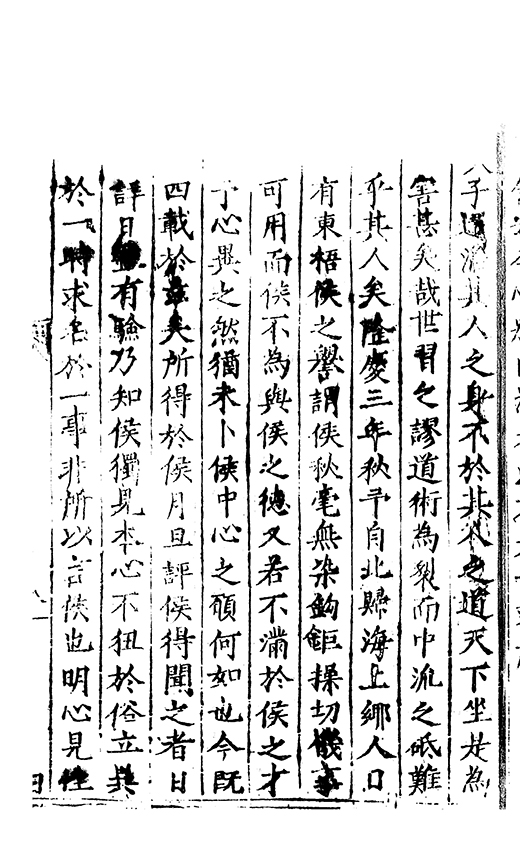 人之身不於其人之道天下坐是為
害甚矣哉世習之謬道術為裂而中流之砥難
乎其人矣隆慶三年秋予自北歸海上鄉人口
有東梧侯之譽謂侯秋毫無染鈎鉅操切機事
可用而侯不為與侯之德又若不滿於侯之才
予心異之然猶未卜侯中心之願何如也今既
四載於茲矣所得於侯月旦評侯得聞之者日
詳日有驗乃知侯獨見本心不狃於俗立異
於一時求名於一事非所以言侯也明心見性